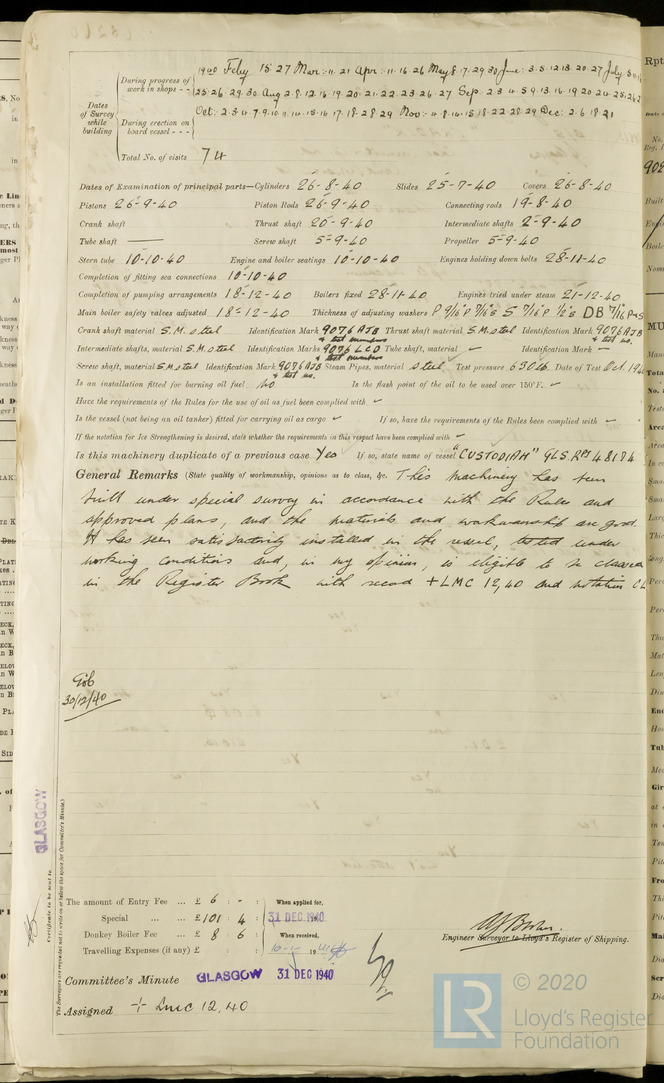 During progress of work in shops - - 1940 Feby 15 27 Mar: 11 21 Apr: 11 16 26 May 8 17 29 30 June: 3 5 12 13 20 27 July
25 26 29 30 Aug 2 8 12 16 19 20 21 22 23 26 27 Sep: 2 3 4 5 9 13 16 19 20 24 25 26
Dates of Survey while building
During erection on board vessel - - - Oct: 2 3 4 7 9 10 11 14 15 16 17 18 28 29 Nov: 4 8 14 15 18 22 28 29 Dec: 2 6 18 21
Total No. of visits 74
Dates of Examination of principal parts—Cylinders 26-8-40 Slides 25-7-40 Covers 26-8-40
Pistons 26-9-40 Piston Rods 26-9-40 Connecting rods 19-8-40
Crank shaft Thrust shaft 20-9-40 Intermediate shafts 2-9-40
Tube shaft — Screw shaft 5-9-40 Propeller 5-9-40
Stern tube 10-10-40 Engine and boiler seatings 10-10-40 Engines holding down bolts 28-11-40
Completion of fitting sea connections 10-10-40
Completion of pumping arrangements 18-12-40 Boilers fixed 28-11-40 Engines tried under steam 21-12-40
Main boiler safety valves adjusted 18-12-40 Thickness of adjusting washers P 9/16 P 7/16 S S 7/16 P 1/2 S DB 7/16 P+S
Crank shaft material S.M. steel Identification Mark 9076 AJB & test numbers Thrust shaft material S.M. steel Identification Mark 9076 AJB & test no.
Intermediate shafts, material S.M. steel Identification Marks 9076 LCD & test numbers Tube shaft, material — Identification Mark —
Screw shaft, material S.M. steel Identification Mark 9076 AJB & test no. Steam Pipes, material steel Test pressure 630 lb. Date of Test Oct. 19
Is an installation fitted for burning oil fuel No Is the flash point of the oil to be used over 150°F. ✓
Have the requirements of the Rules for the use of oil as fuel been complied with ✓
Is the vessel (not being an oil tanker) fitted for carrying oil as cargo ✓ If so, have the requirements of the Rules been complied with ✓
If the notation for Ice Strengthening is desired, state whether the requirements in this respect have been complied with ✓
Is this machinery duplicate of a previous case Yes If so, state name of vessel "CUSTODIAN" GLS. RPT 48174
General Remarks (State quality of workmanship, opinions as to class, &c. This machinery has been
built under special survey in accordance with the Rules and
approved plans, and the materials and workmanship are good.
It has been satisfactorily installed in the vessel, tested under
working conditions and, in my opinion, is eligible to be classed
in the Register Book with record + LMC 12,40 and notation CL
30/12/40
GLASGOW
Certificate to be sent to
(The Surveyors are requested not to write on or below the space for Committee's Minute.)
The amount of Entry Fee ... £ 6 : - : When applied for,
Special ... ... £ 101 : 4 : 31 DEC 1940
Donkey Boiler Fee ... £ 8 : 6 : When received,
Travelling Expenses (if any) £ : :
Engineer Surveyor to Lloyd's Register of Shipping.
Committee's Minute GLASGOW 31 DEC 1940
Assigned + LMC 12,40
LR
© 2020
Lloyd's Register
Foundation